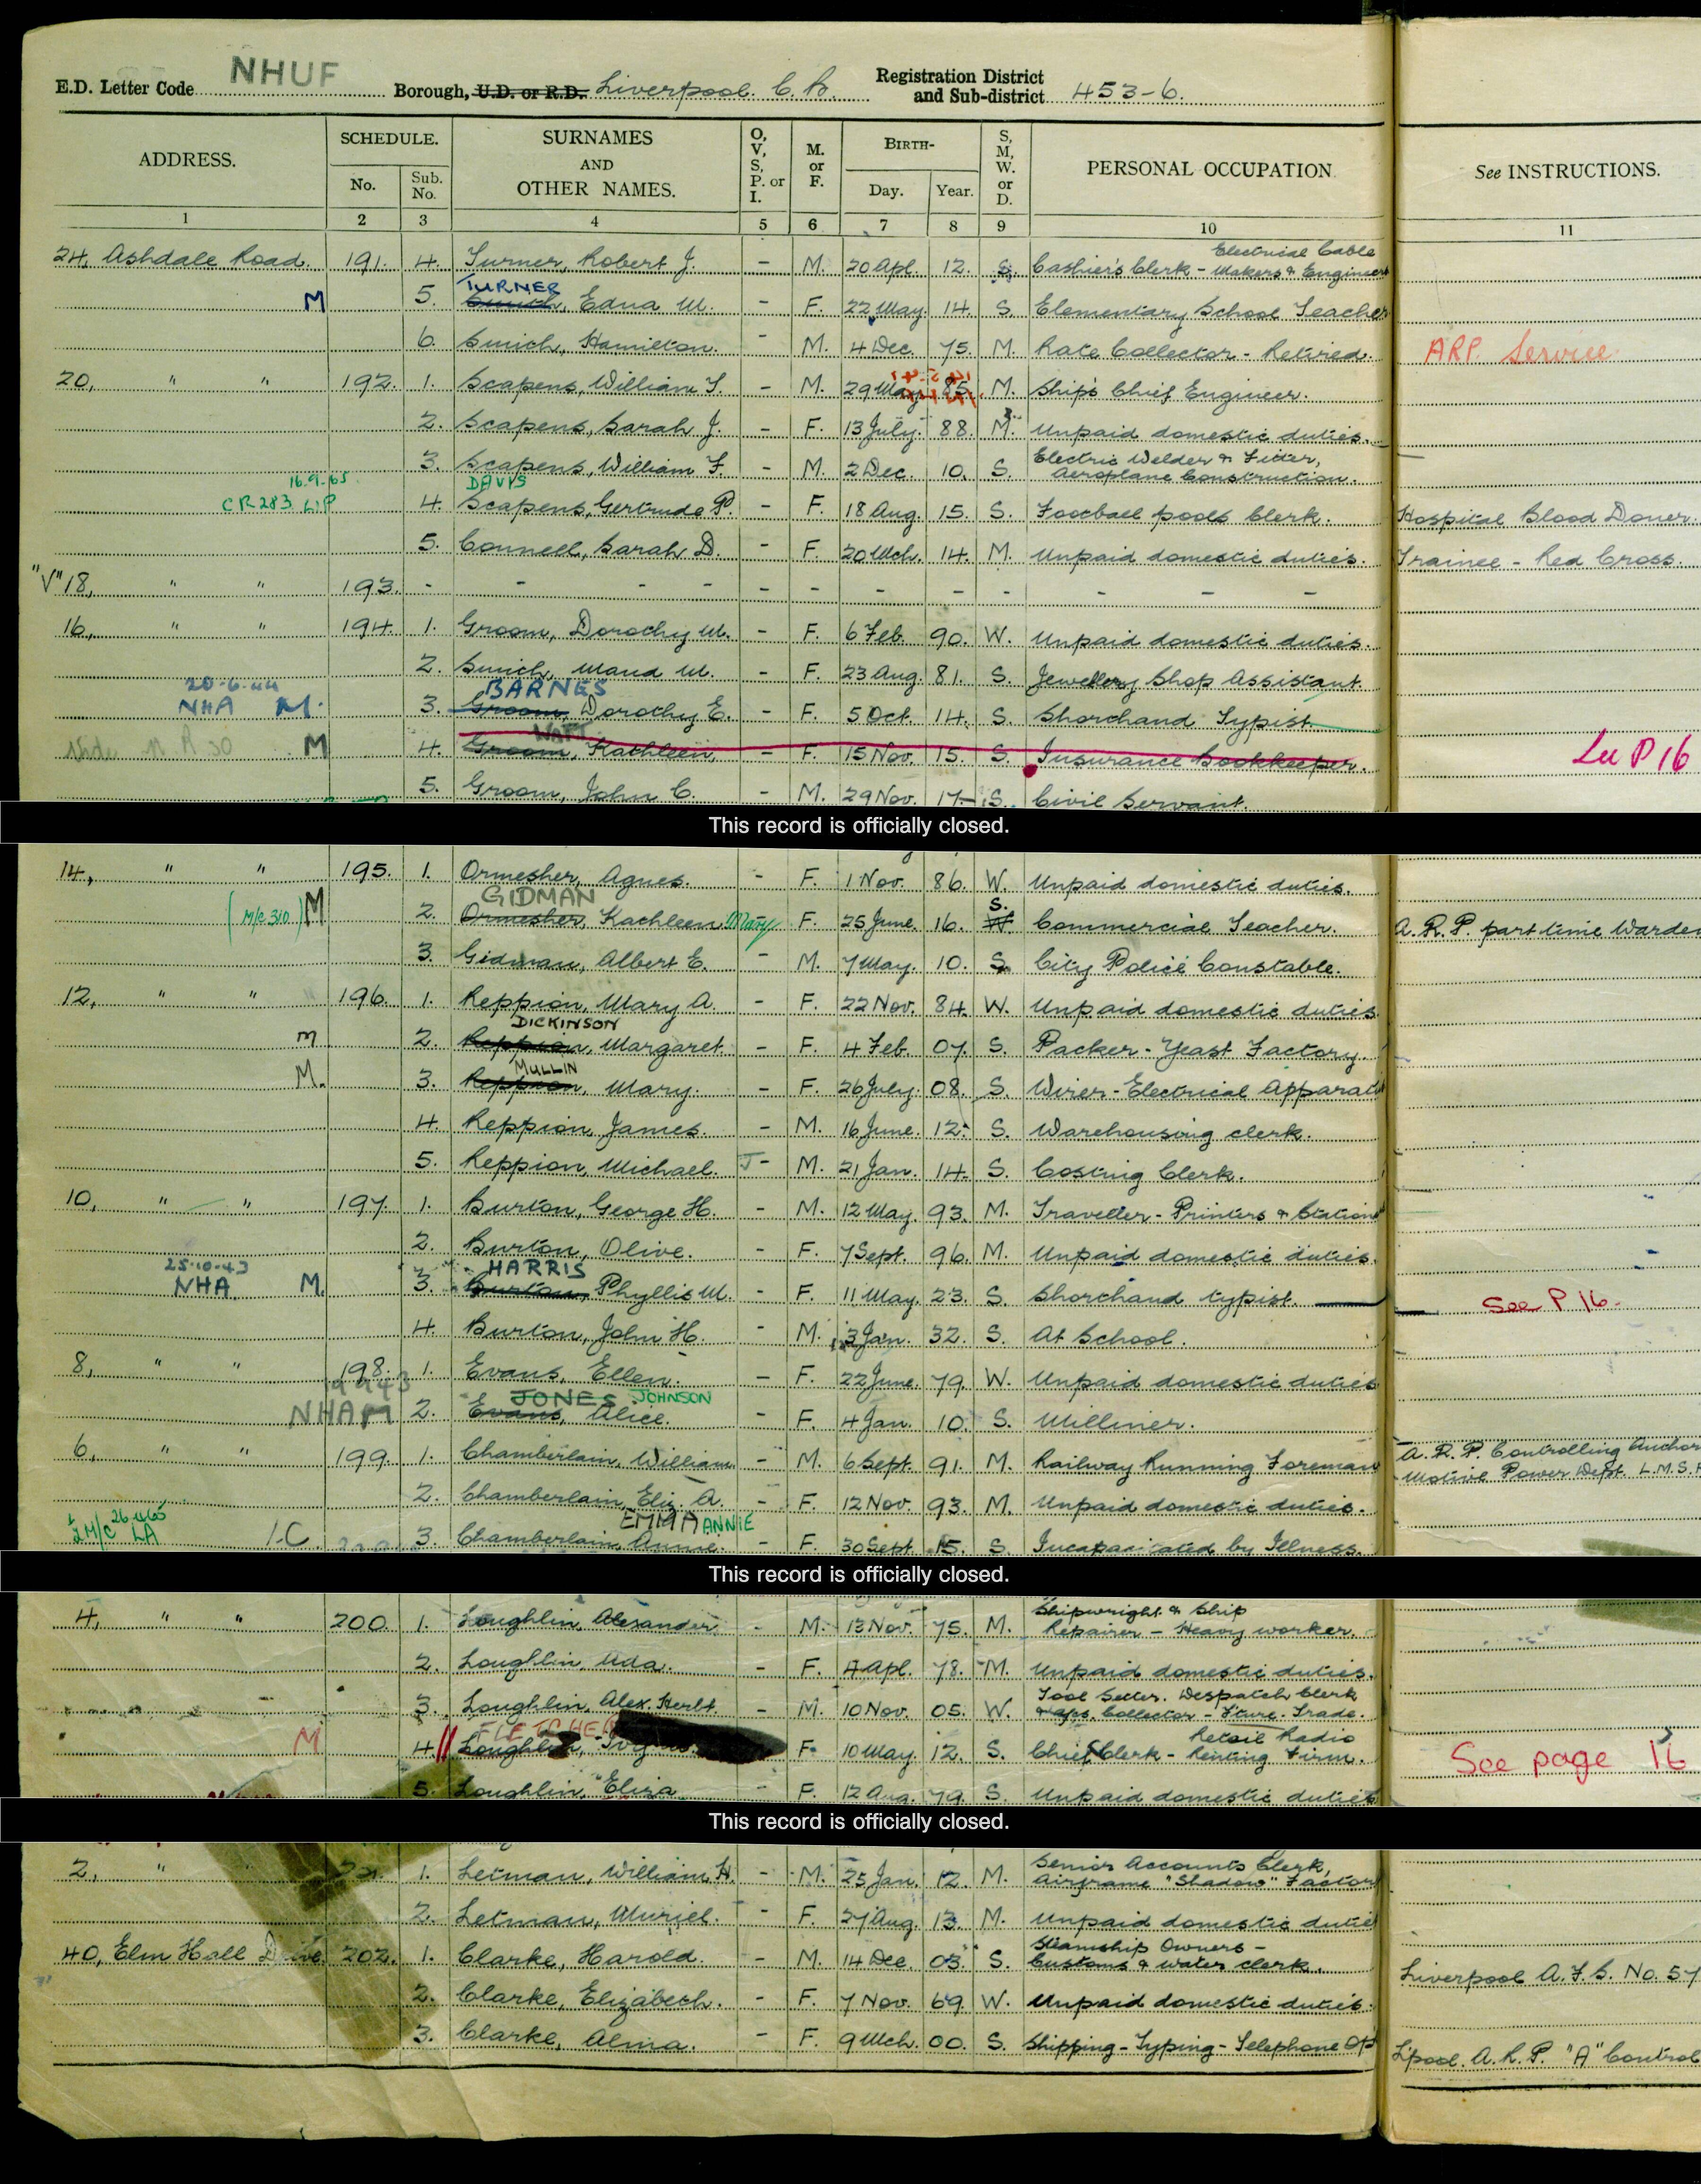 E.D. Letter Code NHUF Borough, U.D. or R.D. Liverpool C.B. Registration District and Sub-district 453-6.
ADDRESS. SCHEDULE. No. Sub. No. SURNAMES AND OTHER NAMES. O, V, S, P. or I. M. or F. BIRTH- Day. Year. S, M, W. or D. PERSONAL OCCUPATION See INSTRUCTIONS.
1 2 3 4 5 6 7 8 9 10 11
24, Ashdale Road. 191. 4. Turner, Robert J. - M. 20 Apl. 12. S. Cashier's Clerk - Electrical Cable Makers & Engineers
M 5. TURNER Smith, Edna M. - F. 22 May 14. S. Elementary School Teacher
6. Smith, Hamilton. - M. 4 Dec. 75. M. Rate Collector - Retired. ARP Service
20, " " 192. 1. Scapens, William T. - M. 29 May 85. M. Ship's Chief Engineer.
2. Scapens, Sarah J. - F. 13 July. 88. M. Unpaid domestic duties.
3. Scapens, William F. - M. 2 Dec. 10. S. Electric Welder & Fitter, Aeroplane Construction.
16.9.65 CR283 L'P 4. DAVIS Scapens, Gertrude P. - F. 18 Aug. 15. S. Football pools Clerk. Hospital Blood Doner.
5. Connell, Sarah D. - F. 20 Mch. 14. M. Unpaid domestic duties. Trainee - Red Cross.
"V" 18, " " 193. - - - - - - - - - - -
16, " " 194. 1. Groom, Dorothy M. - F. 6 Feb. 90. W. Unpaid domestic duties.
2. Smith, Maud M. - F. 23 Aug. 81. S. Jewellery Shop Assistant.
20-6-44 NHA M. 3. BARNES Groom, Dorothy E. - F. 5 Oct. 14. S. Shorthand Typist.
M 4. Groom, Kathleen, - F. 15 Nov. 15. S. Insurance Bookkeeper. See P 16
5. Groom, John C. - M. 29 Nov. 17. S. Civil Servant.
This record is officially closed.
14, " " 195. 1. Ormesher, Agnes. - F. 1 Nov. 86. W. Unpaid domestic duties.
(M/c 310) M 2. GIDMAN Ormesher, Kathleen Mary F. 25 June. 16. S. W Commercial Teacher. A.R.P. part time Warden
3. Gidman, Albert E. - M. 7 May. 10. S. City Police Constable.
12, " " 196. 1. Reppion, Mary A. - F. 22 Nov. 84. W. Unpaid domestic duties
m 2. DICKINSON Reppion, Margaret. - F. 4 Feb. 07. S. Packer - Yeast Factory.
M. 3. MULLIN Reppion, Mary. - F. 26 July. 08. S. Wirer - Electrical Apparat
4. Reppion, James. - M. 16 June. 12. S. Warehousing clerk.
5. Reppion, Michael. J - M. 21 Jan. 14. S. Costing Clerk.
10, " " 197. 1. Burton, George H. - M. 12 May. 93. M. Traveller - Printers & Station
2. Burton, Olive. - F. 7 Sept. 96. M. Unpaid domestic duties.
25.10.43 NHA M. 3. HARRIS Burton, Phyllis M. - F. 11 May. 23. S. Shorthand typist. See P 16.
4. Burton, John H. - M. 3 Jan. 32. S. At School.
8, " " 198. 1. Evans, Ellen. - F. 22 June. 79. W. Unpaid domestic duties
NHA M 2. JONES JOHNSON Evans, Alice. - F. 4 Jan. 10. S. Milliner.
6, " " 199. 1. Chamberlain, William. - M. 6 Sept. 91. M. Railway Running Foreman A.R.P. Controlling Motive Power Dept. L.M.S.R
2. Chamberlain, Eliz. A. - F. 12 Nov. 93. M. Unpaid domestic duties.
26.4.65 M/C LA I.C. 3. EMMA ANNIE Chamberlain, Annie. - F. 30 Sept. 15. S. Incapacitated by Illness.
This record is officially closed.
4, " " 200. 1. Loughlin, Alexander. - M. 13 Nov. 75. M. Shipwright & Ship Repairer - Heavy worker.
2. Loughlin, Ada. - F. 7 Apl. 78. M. Unpaid domestic duties.
3. Loughlin, Alex. Herbt. - M. 10 Nov. 05. W. Tool Setter. Despatch Clerk Collector - Fture. Trade.
M 4. FLETCHER Loughlin, F. 10 May. 12. S. Chief Clerk - Retail Radio Renting Firm. See page 16
5. Loughlin, Eliza - F. 12 Aug. 79. S. Unpaid domestic duties
This record is officially closed.
2, " 1. Letman, William H. - M. 25 Jan. 12. M. Senior Accounts Clerk, Airframe "Shadow" Factor
2. Letman, Muriel. - F. 27 Aug. 13. M. Unpaid domestic dutie
40, Elm Hall Drive 202. 1. Clarke, Harold. - M. 14 Dec. 03. S. Steamship Owners - Customs & water clerk. Liverpool A.F.S. No. 57
2. Clarke, Elizabeth. - F. 7 Nov. 69. W. Unpaid domestic duties.
3. Clarke, Alma. - F. 9 Mch. 00. S. Shipping - Typing - Telephone Op L'pool. A.R.P. "A" Control